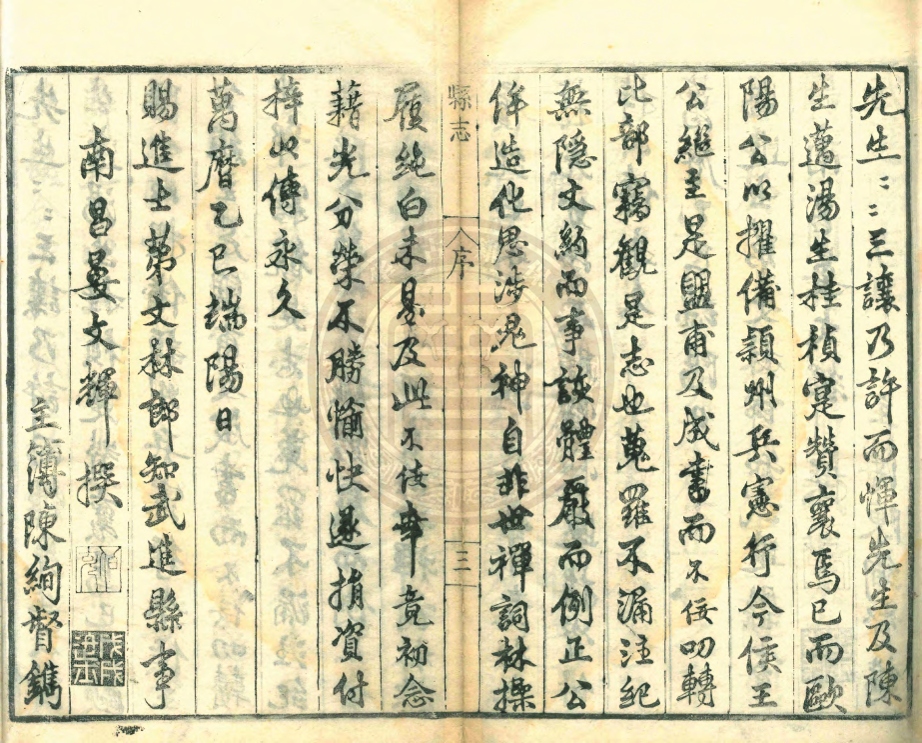 先生〻〻三讓乃許而惲先生及陳
生藎湯生桂楨寔贊襄焉已而歐
陽公以擢備頴州兵憲行今侯王
公繼主是盟甫及成書而不佞叨轉
比部竊觀是志也蒐羅不漏注紀
無隱文約而事該體嚴而例正公
侔造化思涉鬼神自非世禪詞林操
縣志
序
三
履純白未易及此不佞幸竟初念
藉光分榮不勝愉快遂捐資付
梓以傳永久
萬曆乙巳端陽日
賜進士第文林郎知武進縣事
南昌晏文輝撰
主簿陳絢督鐫